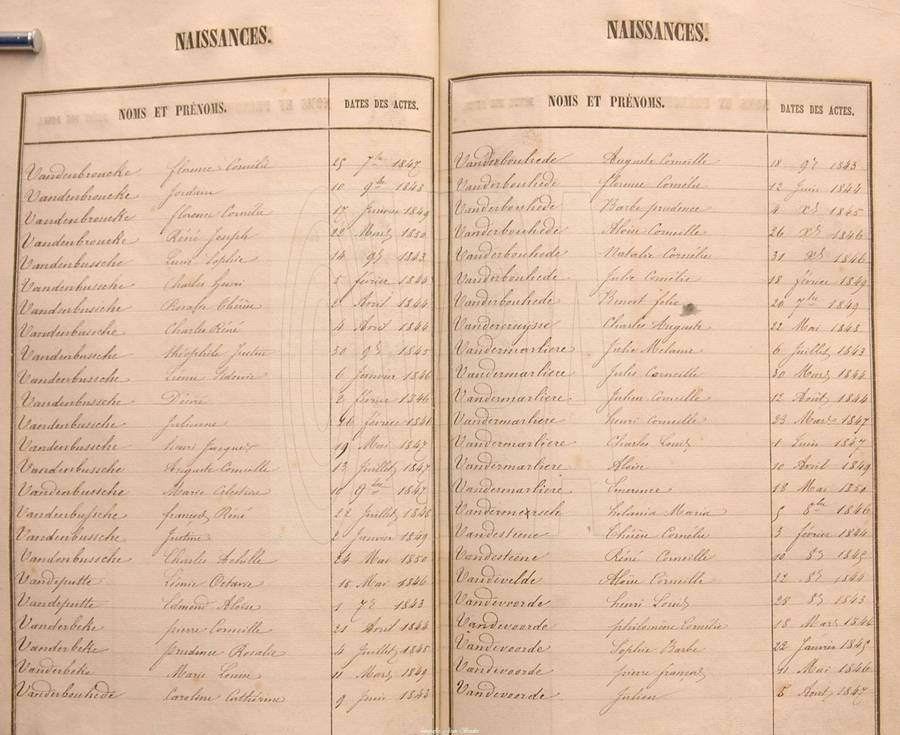 NAISSANCES.
NOMS ET PRÉNOMS. DATES DES ACTES.
Vandenbroucke florence Cornélie 25 7bre 1847
Vandenbroucke Jordain 10 9bre 1848
Vandenbroucke florence Cornélie 17 Janvier 1849
Vandenbroucke Réné Joseph 22 Mars 1850
Vandenbussche Sophie 14 9bre 1843
Vandenbussche Charles Henri 5 février 1844
Vandenbussche Rosalie 2 Avril 1844
Vandenbussche Charles Réné 4 Aout 1844
Vandenbussche théophile Justin 30 9bre 1845
Vandenbussche Sidonie 6 Janvier 1846
Vandenbussche Désiré 2 février 1846
Vandenbussche Julienne février 1846
Vandenbussche henri Jacques 19 Mai 1847
Vandenbussche Auguste Corneille 13 Juillet 1847
Vandenbussche Marie Célestine 16 9bre 1847
Vandenbussche françois Réné 22 Juillet 1848
Vandenbussche Justine 2 Janvier 1849
Vandenbussche Charles Achille 24 Mai 1850
Vandeputte Octavie 18 Mai 1846
Vandeputte Edmond Aloïse 1 7E 1843
Vanderbeke pierre Corneille 21 Avril 1844
Vanderbeke prudence Rosalie 4 Juillet 1845
Vanderbeke Marie Louise 11 Mars 1849
Vanderbouhede Caroline Cathérine 9 Juin 1843
NAISSANCES.
NOMS ET PRÉNOMS. DATES DES ACTES.
Vanderbouhede Auguste Corneille 18 9E 1843
Vanderbouhede florence Cornélie 12 Juin 1844
Vanderbouhede Barbe prudence 4 Xbre 1845
Vanderbouhede Aloïse Corneille 26 Xbre 1846
Vanderbouhede Natalie Cornélie 31 Xbre 1846
Vanderbouhede Julie Cornélie 18 février 1849
Vanderbouhede Benoit félix 20 7bre 1849
Vandercruysse Charles Auguste 22 Mai 1848
Vandermarliere Julie Melanie 6 Juillet 1843
Vandermarliere Jules Corneille 30 Mars 1844
Vandermarliere Julien Corneille 12 Août 1844
Vandermarliere henri Corneille 23 Mars 1847
Vandermarliere Charles Louis 1 Juin 1847
Vandermarliere Aloïse 10 Avril 1849
Vandermarliere Emerence 18 Mai 1850
Vandermeersch Maria 5 8bre 1846
Vandesteene Cornélie 3 février 1844
Vandesteene Réné Corneille 10 8E 1845
Vandevelde Aloïse Corneille 22 8E 1844
Vandevoorde henri Louis 28 8E 1843
Vandevoorde philomène Cornélie 18 Mars 1844
Vandevoorde Sophie Barbe 22 Janvier 1845
Vandevoorde pierre françois 11 Mai 1846
Vandevoorde Julien 5 Aout 1847